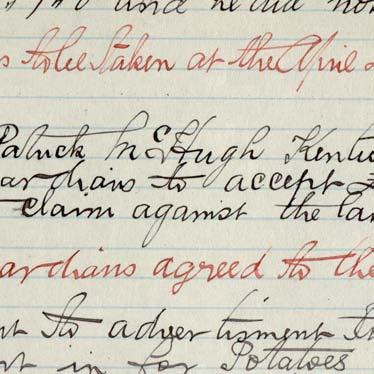 and he did no
s to be taken at the April
Patrick McHugh Kentu
ardians to accept
claim against the la
ardians agreed to the
nt to advertisment
in for Potatoes